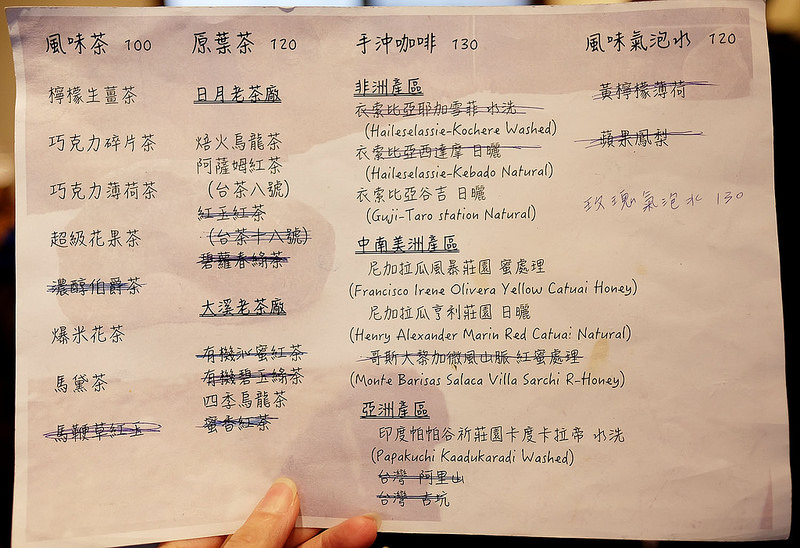 風味茶 100
檸檬生薑茶
巧克力碎片茶
巧克力薄荷茶
超級花果茶
濃醇伯爵茶
爆米花茶
馬黛茶
馬鞭草紅玉
原葉茶 120
日月老茶廠
焙火烏龍茶
阿薩姆紅茶
(台茶八號)
紅玉紅茶
(台茶十八號)
碧蘿春綠茶
大溪老茶廠
有機沁蜜紅茶
有機碧玉綠茶
四季烏龍茶
蜜香紅茶
手沖咖啡 130
非洲產區
衣索比亞耶加雪菲 水洗
(Haileselassie-Kochere Washed)
衣索比亞西達摩 日曬
(Haileselassie-Kebado Natural)
衣索比亞谷吉 日曬
(Guji-Taro station Natural)
中南美洲產區
尼加拉瓜風暴莊園 蜜處理
(Francisco Irene Olivera Yellow Catuai Honey)
尼加拉瓜亨利莊園 日曬
(Henry Alexander Marin Red Catuai Natural)
哥斯大黎加微風山脈 紅蜜處理
(Monte Barisas Salaca Villa Sarchi R-Honey)
亞洲產區
印度帕帕谷祈莊園卡度卡拉帝 水洗
(Papakuchi Kaadukaradi Washed)
台灣 阿里山
台灣 古坑
風味氣泡水 120
黃檸檬薄荷
蘋果鳳梨
玫瑰氣泡水 130